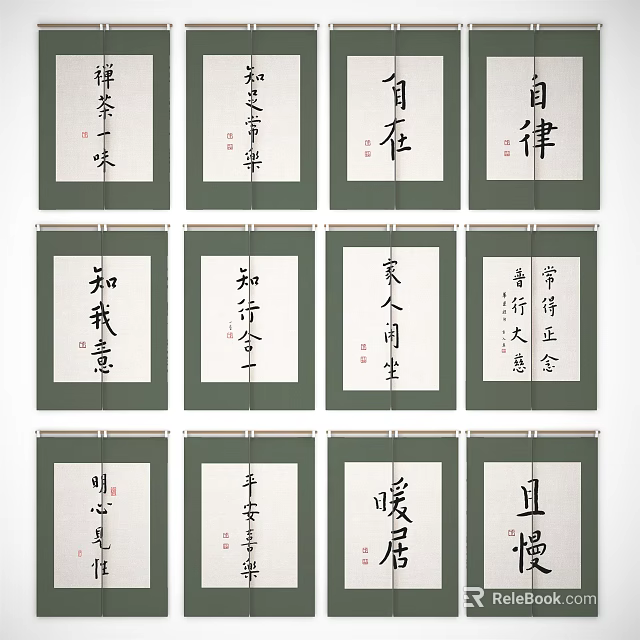 禪茶一味
知足常樂
自在
自律
知我意
知行合一
家人闲坐
常得正念
普行大慈
明心見性
平安喜樂
暖居
且慢
ReleBook.com